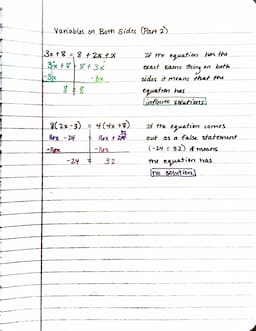 Variables on Both Sides (Part 2)
3x + 8 = 8 + 2x + x
3x + 8 = 8 + 3x
-3x -3x
8 = 8
If the equation has the
exact same thing on both
sides it means that the
equation has
infinite solutions
8(2x - 3) = 4(4x + 8)
16x - 24 = 16x + 32
-16x -16x
-24 = 32
If the equation comes
out as a false statement
(-24 = 32) it means
the equation has
no solution